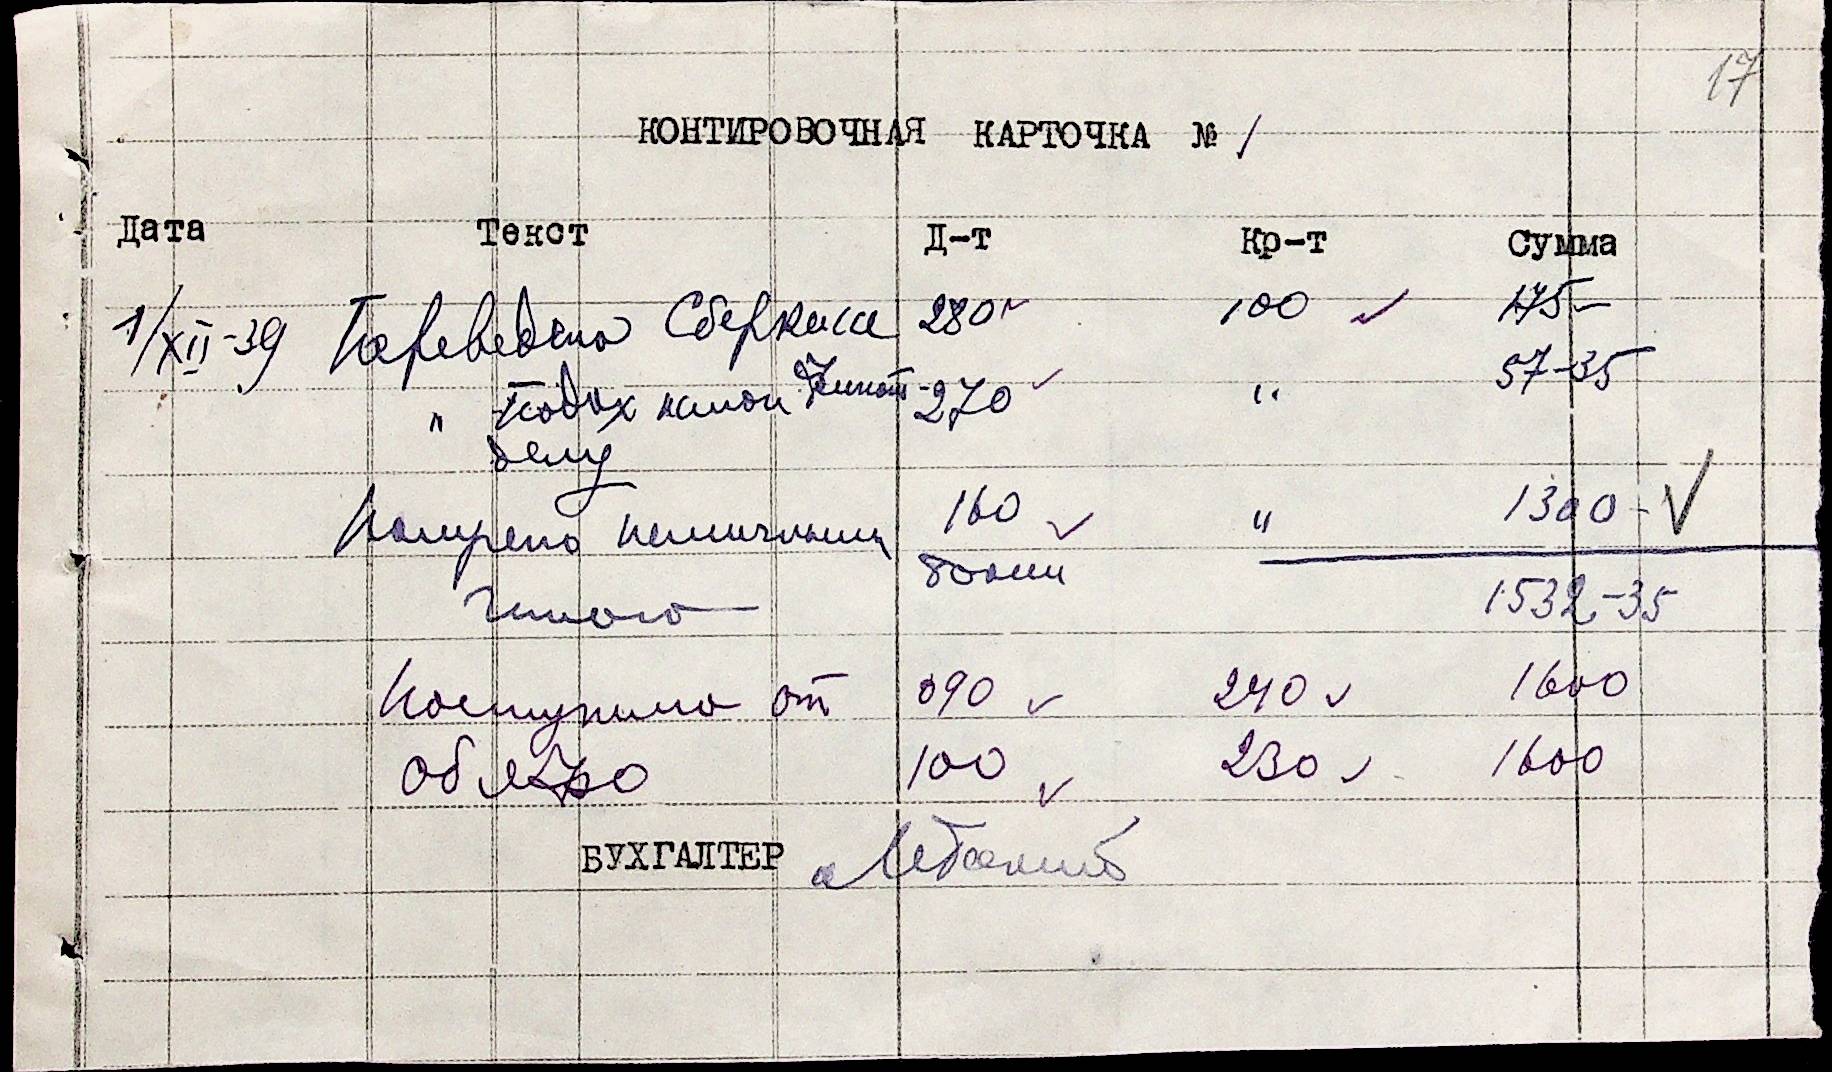 17
КОНТИРОВОЧНАЯ КАРТОЧКА № 1
Дата Текст Д-т Кр-т Сумма
1/XII-39 Переведено Сберкассе 280 100 175-
" Подох налог 270 " 57-35
делу
160 " 1300-
Итого 1532-35
Поступило от 090 240 1600
Облзо 100 230 1600
БУХГАЛТЕР